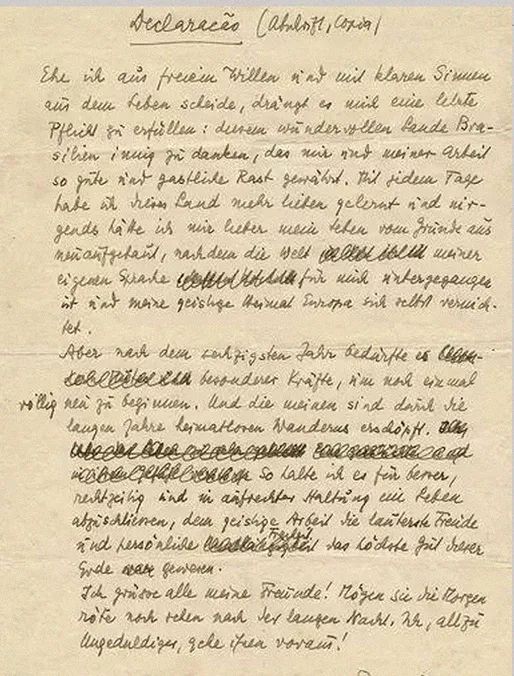 Declaracão (Abschrift, Copia)
Ehe ich aus freiem Willen und mit klaren Sinnen
aus dem Leben scheide, drängt es mich eine letzte
Pflicht zu erfüllen: diesem wundervollen Lande Bra-
silien innig zu danken, das mir und meiner Arbeit
so gute und gastliche Rast gewährt. Mit jedem Tage
habe ich dieses Land mehr lieben gelernt und nir-
gends hätte ich mir lieber mein Leben vom Grunde aus
neu aufgebaut, nachdem die Welt meiner
eigenen Sprache für mich untergegangen
ist und meine geistige Heimat Europa sich selbst vernich-
tet.
Aber nach dem sechzigsten Jahr bedürfte es
besonderer Kräfte, um noch einmal
völlig neu zu beginnen. Und die meinen sind durch die
langen Jahre heimatlosen Wanderns erschöpft.
So halte ich es für besser,
rechtzeitig und in aufrechter Haltung ein Leben
abzuschliessen, dem geistige Arbeit die lauterste Freude
und persönliche Freiheit das höchste Gut dieser
Erde gewesen.
Ich grüsse alle meine Freunde! Mögen sie die Morgen
röte noch sehen nach der langen Nacht. Ich, allzu
Ungeduldiger, gehe ihnen voraus!